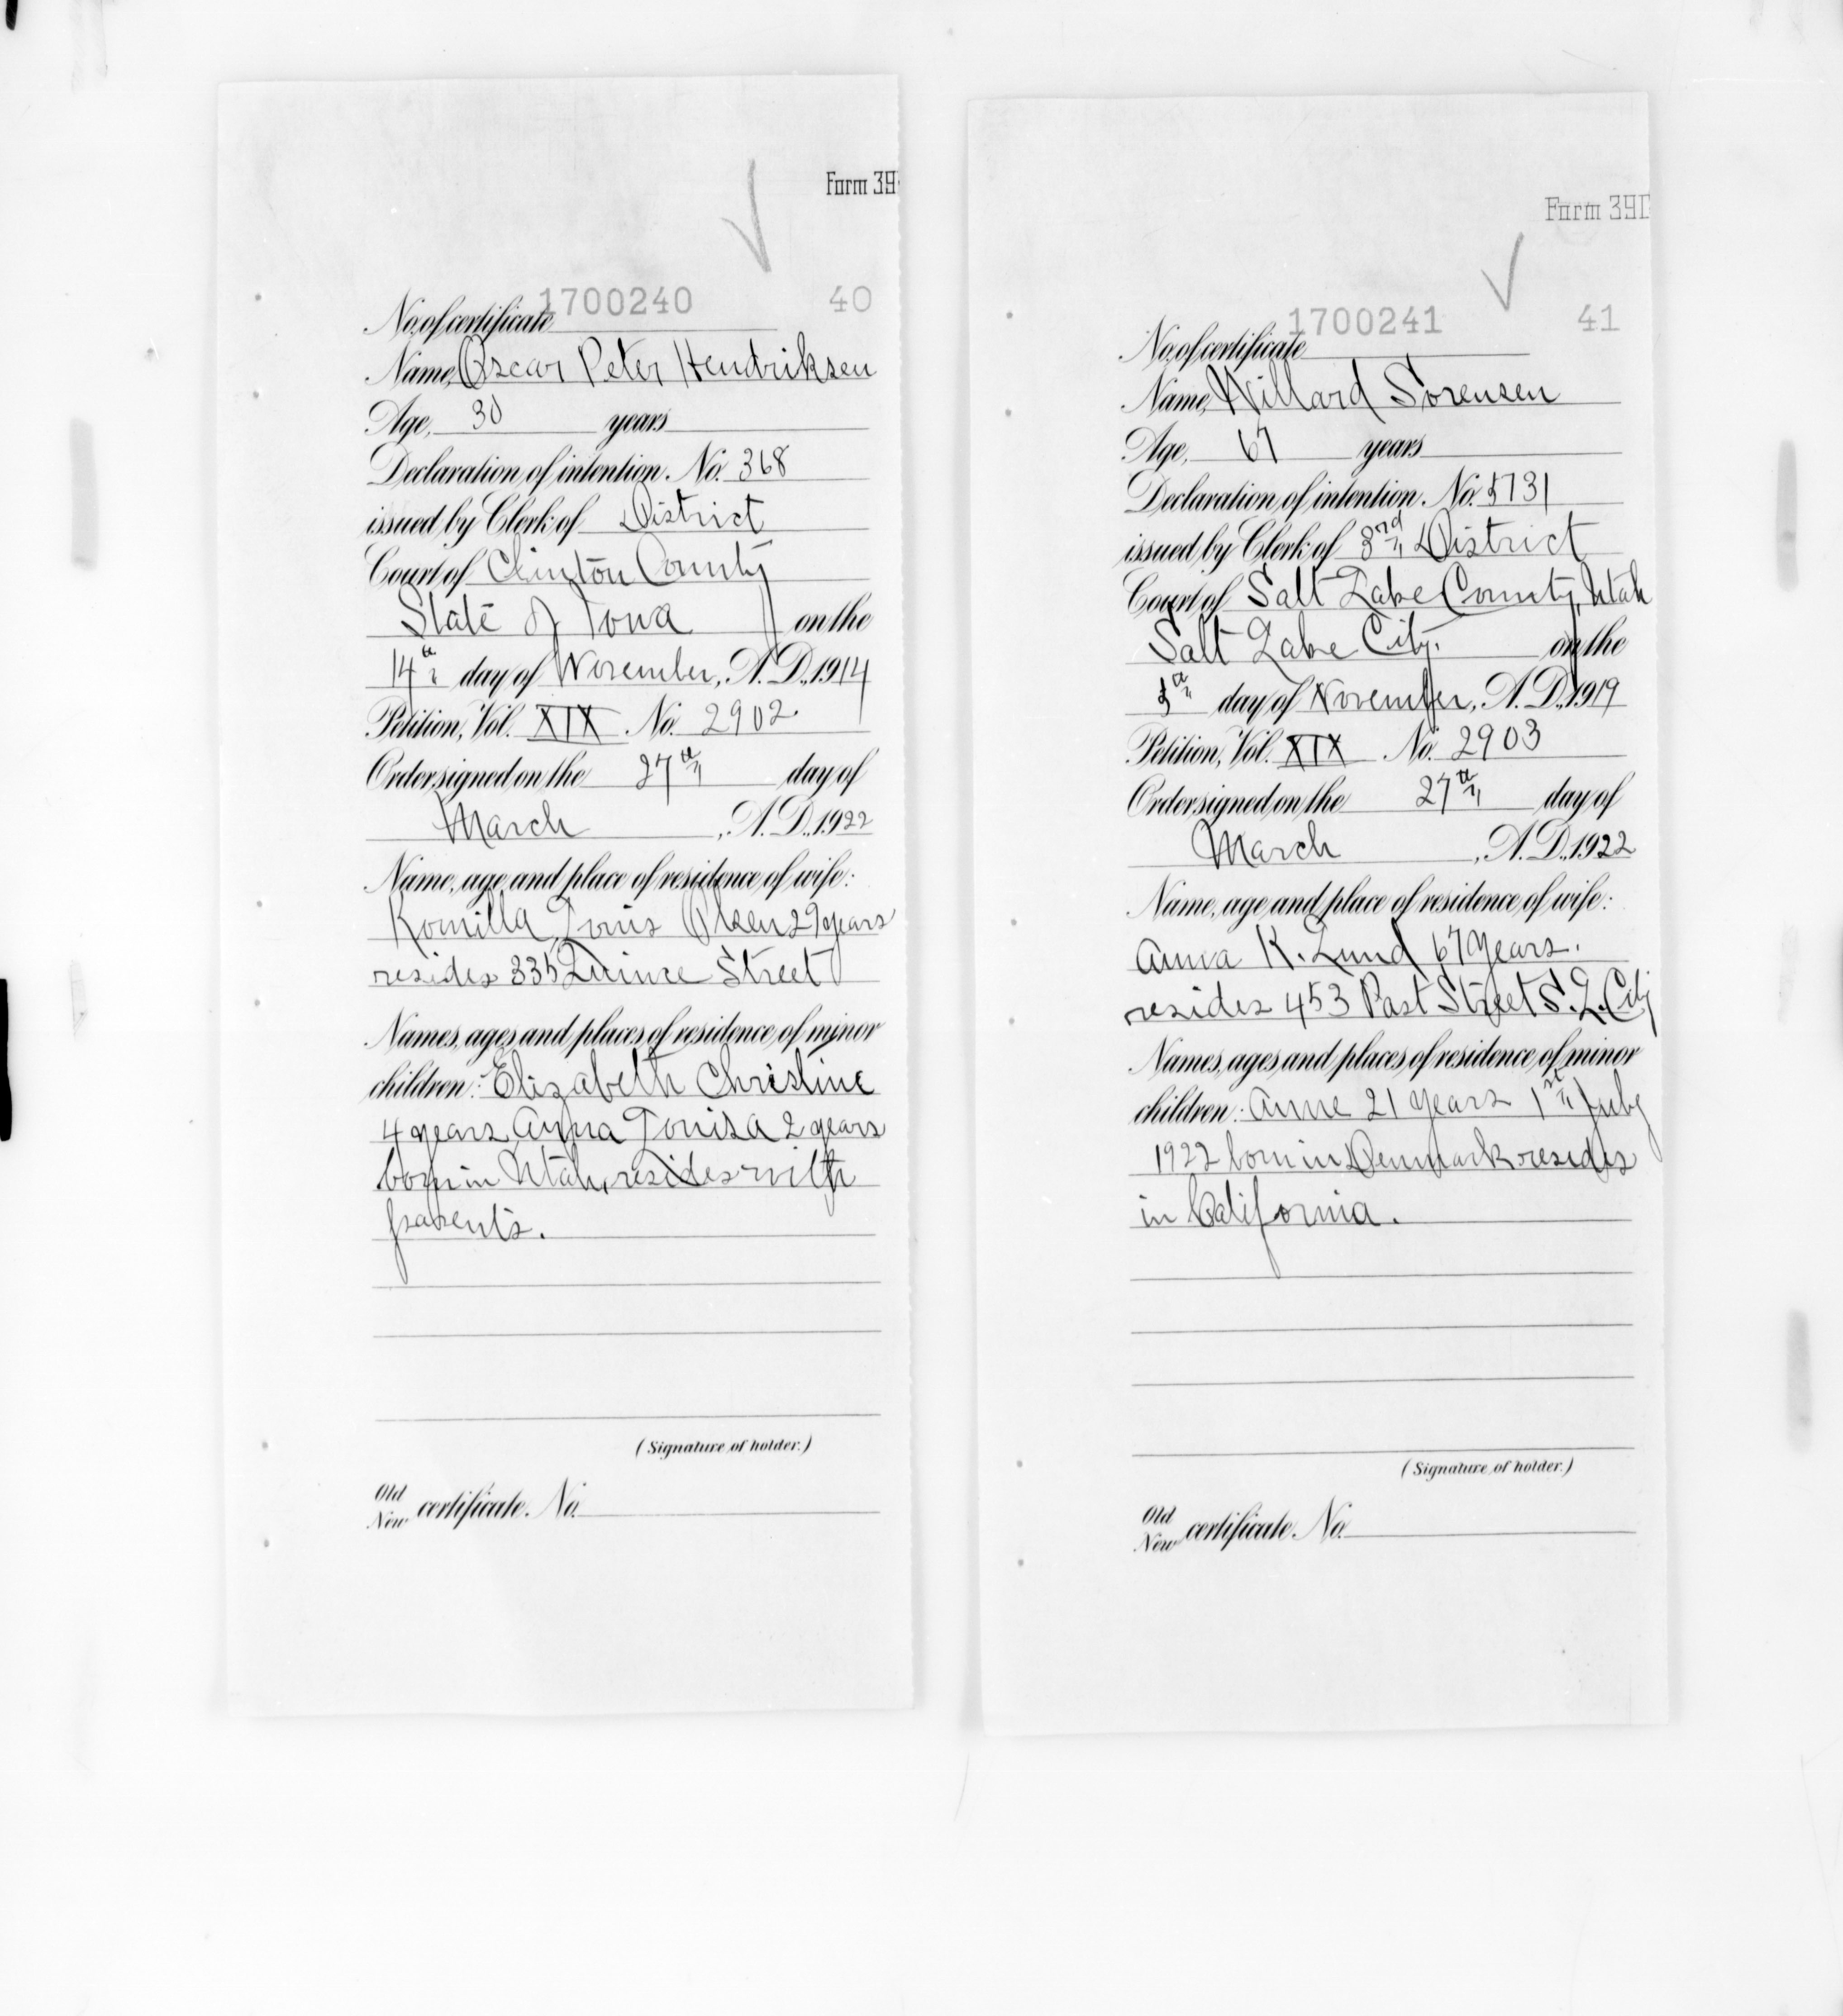 Form 39
1700240 40
No. of certificate
Name, Oscar Peter Hendriksen
Age, 30 years
Declaration of intention, No. 368
issued by Clerk of District
Court of Clinton County
State of Iowa on the
14th day of November, A.D., 1914
Petition, Vol. XIX No. 2902.
Order signed on the 27th day of
March, A.D., 1922
Name, age and place of residence of wife:
Olsen 29 years
resides 335 Quince Street
Names, ages and places of residence of minor
children: Elizabeth Christine
4 years, Anna Louisa 2 years
born in Utah, resides with
parents.
(Signature of holder.)
Old
New certificate. No.
Form 390
1700241 41
No. of certificate
Name, Willard Sorensen
Age, 67 years
Declaration of intention, No. 5731
issued by Clerk of 3rd District
Court of Salt Lake County, Utah
Salt Lake City. on the
5th day of November, A.D., 1919
Petition, Vol. XIX No. 2903
Order signed on the 27th day of
March, A.D., 1922
Name, age and place of residence of wife:
Anna K. Lund 67 years.
resides 453 Post Street S. L. City
Names, ages and places of residence of minor
children: Anne 21 years 1st July
1922 born in Denmark resides
in California.
(Signature of holder.)
Old
New certificate No.